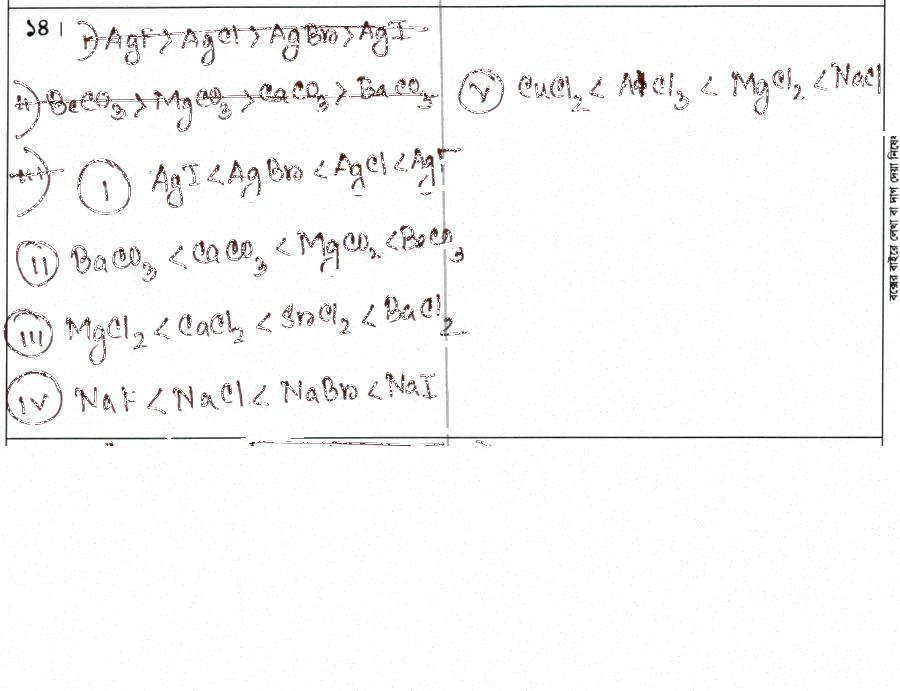 ১৪।
i) AgF > AgCl > AgBr > AgI
ii) BeCO₃ > MgCO₃ > CaCO₃ > BaCO₃
iii)
i AgI < AgBr < AgCl < AgF
ii BaCO₃ < CaCO₃ < MgCO₃ < BeCO₃
iii MgCl₂ < CaCl₂ < SrCl₂ < BaCl₂
iv NaF < NaCl < NaBr < NaI
v CuCl₂ < AlCl₃ < MgCl₂ < NaCl
বক্সের বাইরে লেখা বা দাগ দেয়া নিষেধ